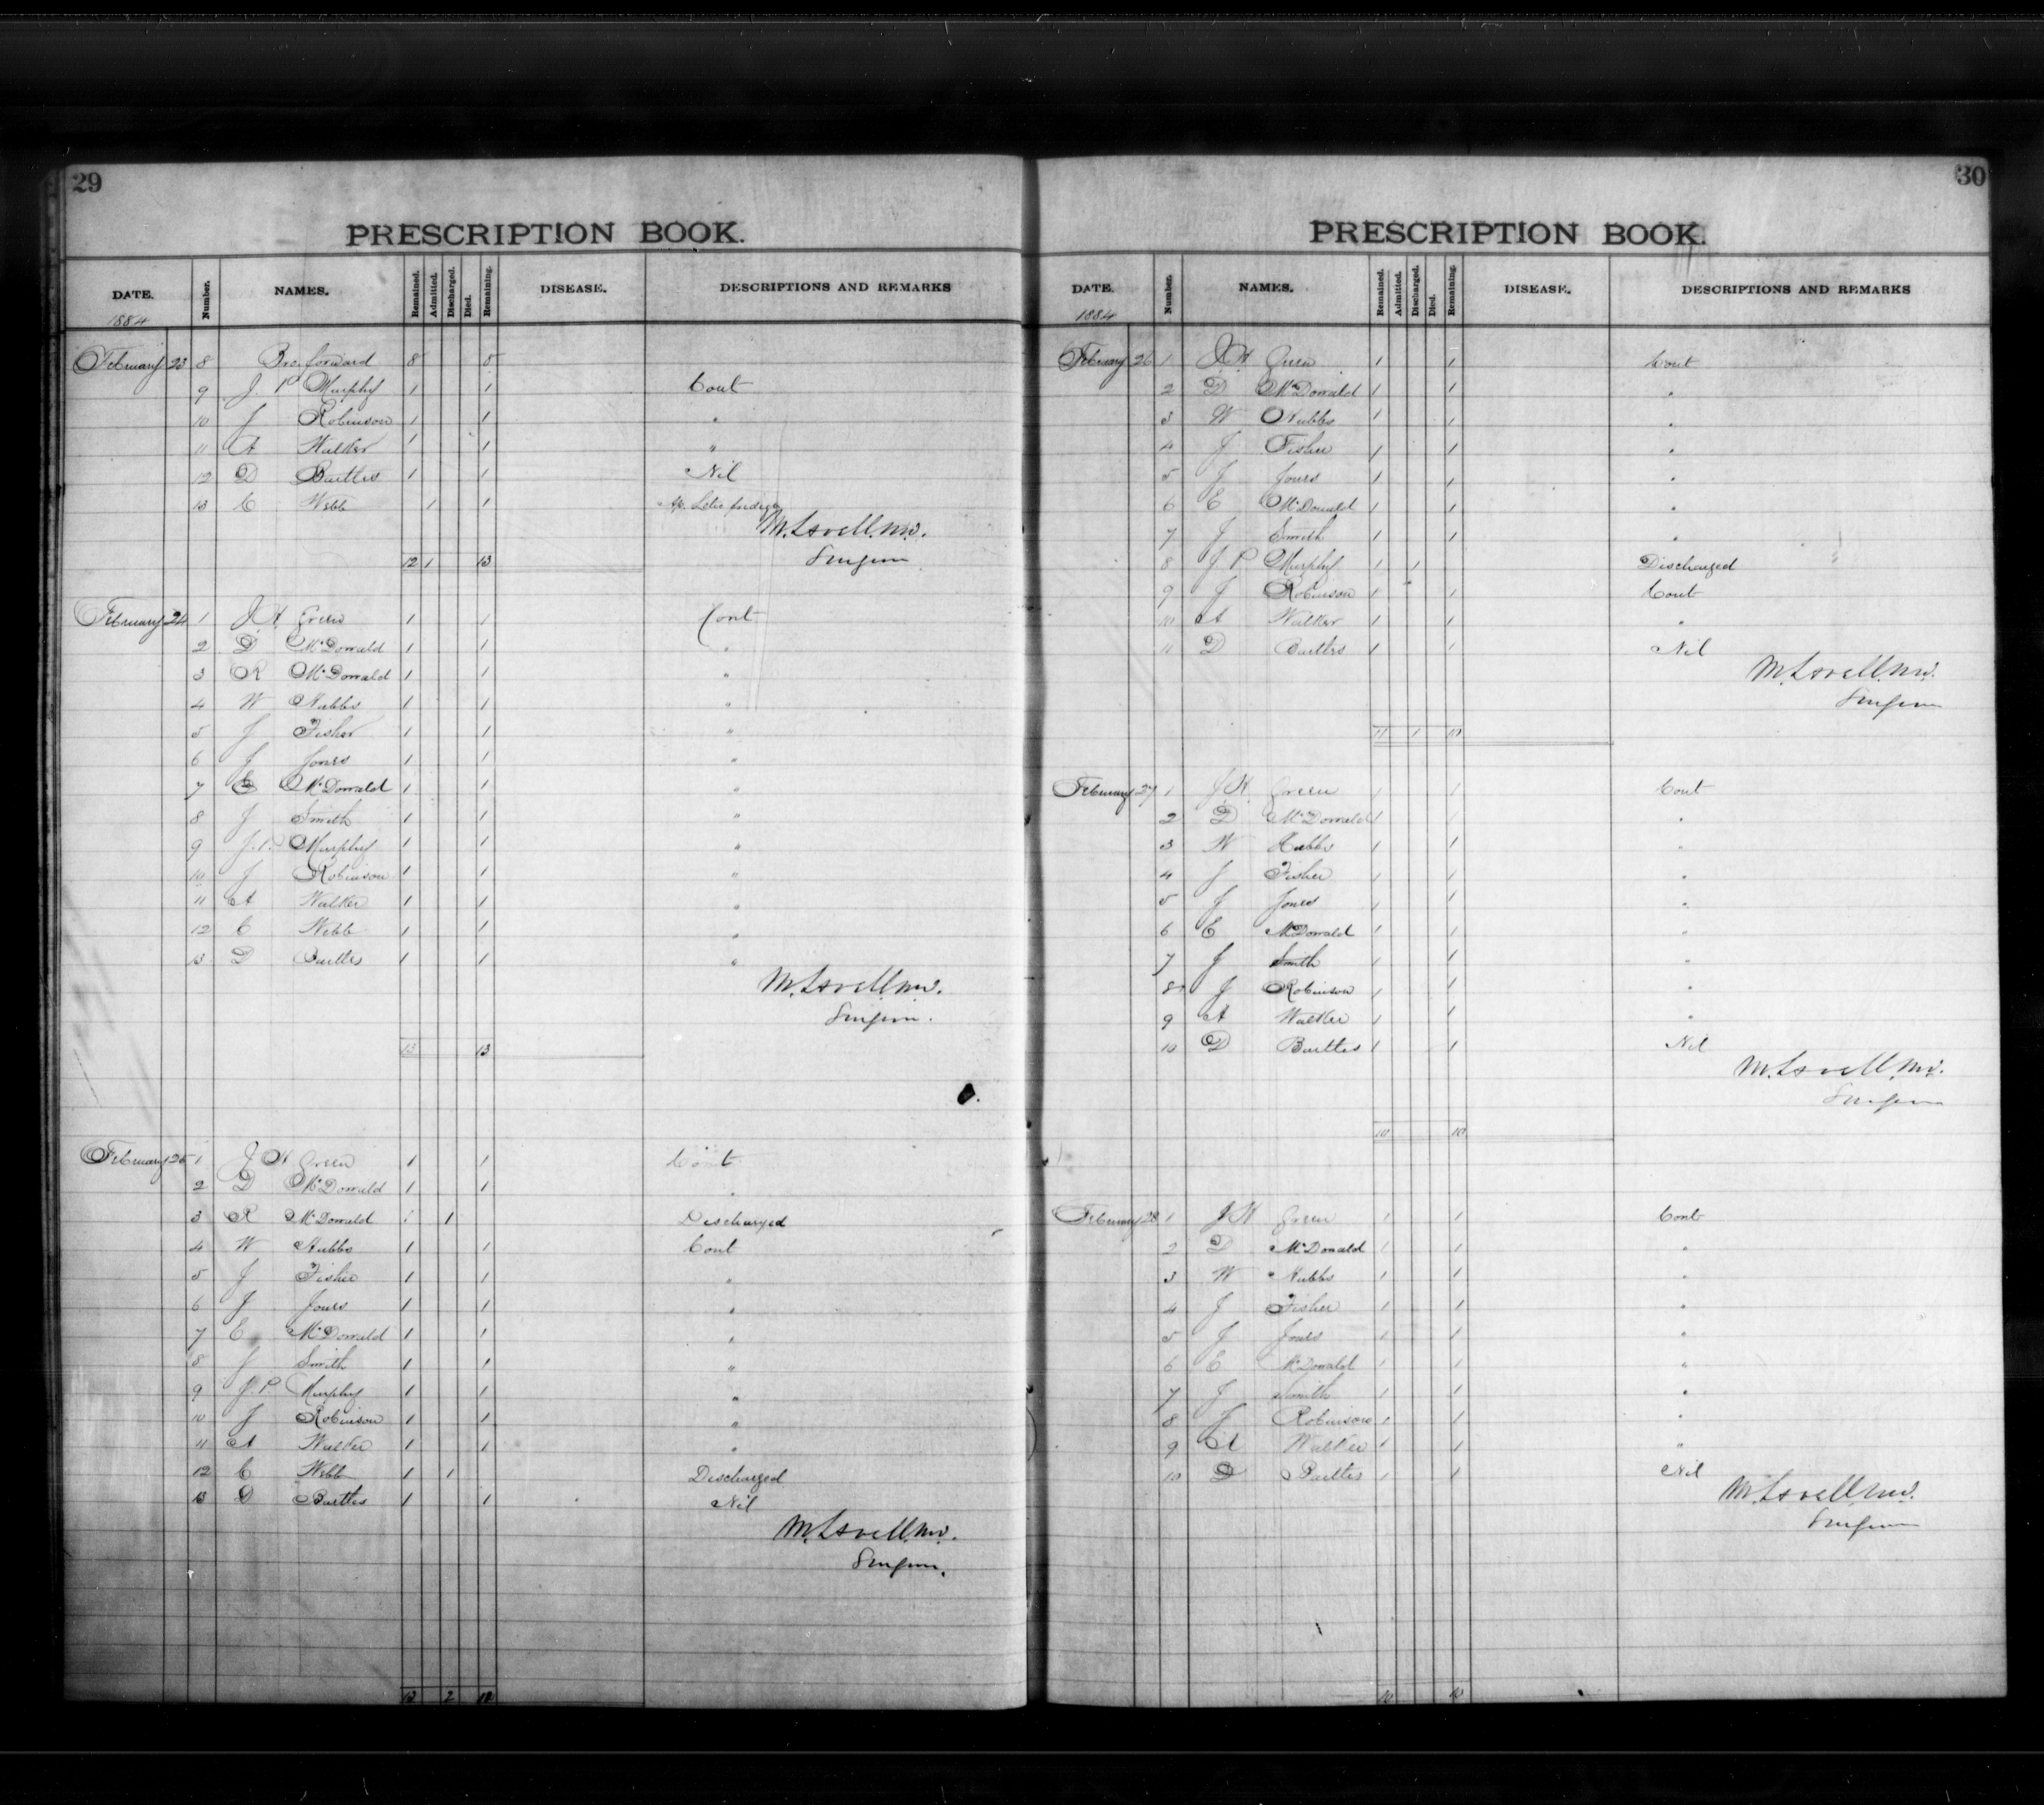 29
PRESCRIPTION BOOK.
DATE. Number. NAMES. Remained. Admitted. Discharged. Died. Remaining. DISEASE. DESCRIPTIONS AND REMARKS
1884
February 23 8 Bro. forward 8 8
9 J. P Murphy 1 1 Cont
10 J Robinson 1 1 "
11 A Walker 1 1 "
12 D Bartles 1 1 Nil
13 C Webb 1 1
M. Lavell. MD.
12 1 13 Surgeon
February 24 1 J. H Green 1 1 Cont
2 D McDonald 1 1 "
3 R McDonald 1 1 "
4 W Hubbs 1 1 "
5 J Fisher 1 1 "
6 J Jones 1 1 "
7 E McDonald 1 1 "
8 J Smith 1 1 "
9 J. P. Murphy 1 1 "
10 J Robinson 1 1 "
11 A Walker 1 1 "
12 C Webb 1 1 "
13 D Bartles 1 1 "
M. Lavell MD.
Surgeon.
13 13
February 25 1 J H Green 1 1 Cont
2 D McDonald 1 1 "
3 R McDonald 1 1 Discharged
4 W Hubbs 1 1 Cont
5 J Fisher 1 1 "
6 J Jones 1 1 "
7 E McDonald 1 1 "
8 J Smith 1 1 "
9 J. P Murphy 1 1 "
10 J Robinson 1 1 "
11 A Walker 1 1 "
12 C Webb 1 1 Discharged
13 D Bartles 1 1 Nil
M. Lavell MD.
Surgeon.
13 2 11
30
PRESCRIPTION BOOK.
DATE. Number. NAMES. Remained. Admitted. Discharged. Died. Remaining. DISEASE. DESCRIPTIONS AND REMARKS
1884
February 26 1 J. H Green 1 1 Cont
2 D McDonald 1 1 "
3 W Hubbs 1 1 "
4 J Fisher 1 1 "
5 J Jones 1 1 "
6 E McDonald 1 1 "
7 J Smith 1 1 "
8 J P Murphy 1 1 Discharged
9 J Robinson 1 1 Cont
10 A Walker 1 1 "
11 D Bartles 1 1 Nil
M. Lavell. MD.
Surgeon
11 1 10
February 27 1 J H Green 1 1 Cont
2 D McDonald 1 1 "
3 W Hubbs 1 1 "
4 J Fisher 1 1 "
5 J Jones 1 1 "
6 E McDonald 1 1 "
7 J Smith 1 1 "
8 J Robinson 1 1 "
9 A Walker 1 1 "
10 D Bartles 1 1 Nil
M. Lavell. MD.
Surgeon
10 10
February 28 1 J H Green 1 1 Cont
2 D McDonald 1 1 "
3 W Hubbs 1 1 "
4 J Fisher 1 1 "
5 J Jones 1 1 "
6 E McDonald 1 1 "
7 J Smith 1 1 "
8 J Robinson 1 1 "
9 A Walker 1 1 "
10 D Bartles 1 1 Nil
M. Lavell MD.
Surgeon
10 10